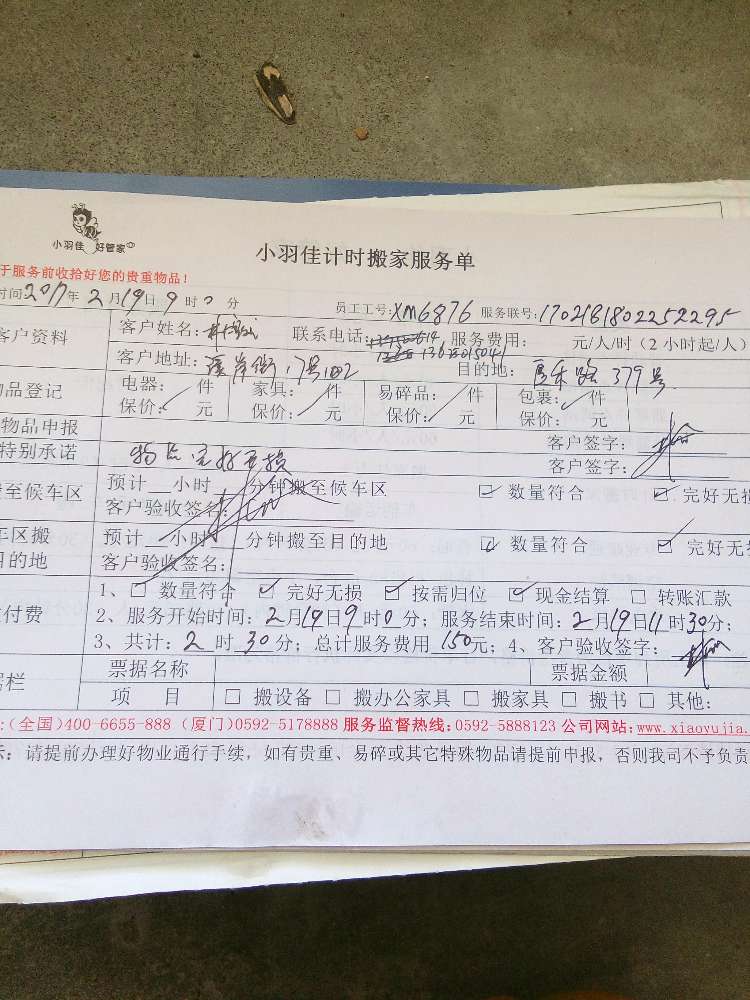 小羽佳 好管家
小羽佳计时搬家服务单
于服务前收拾好您的贵重物品!
时间2017年2月19日9时0分 员工工号:XM6876 服务联号:1702181802252295
客户资料 客户姓名: 联系电话: 服务费用: 元/人/时(2小时起/人)
客户地址: 7号102 目的地: 厦禾路379号
品登记 电器: 件 家具: 件 易碎品: 件 包裹: 件
保价: 元 保价: 元 保价: 元 保价: 元
物品申报 客户签字:
特别承诺 物品完好无损 客户签字:
至候车区 预计 小时 分钟搬至候车区 数量符合 完好无损
客户验收签名:
车区搬 预计 小时 分钟搬至目的地 数量符合 完好无
目的地 客户验收签名:
付费 1、 数量符合 完好无损 按需归位 现金结算 转账汇款
2、服务开始时间:2月19日9时0分; 服务结束时间:2月19日11时30分;
3、共计:2时30分; 总计服务费用150元; 4、客户验收签字:
栏 票据名称 票据金额
项 目 搬设备 搬办公家具 搬家具 搬书 其他:
:(全国)400-6655-888 (厦门)0592-5178888 服务监督热线:0592-5888123 公司网站:www.xiaoyujia.
示: 请提前办理好物业通行手续,如有贵重、易碎或其它特殊物品请提前申报,否则我司不予负责